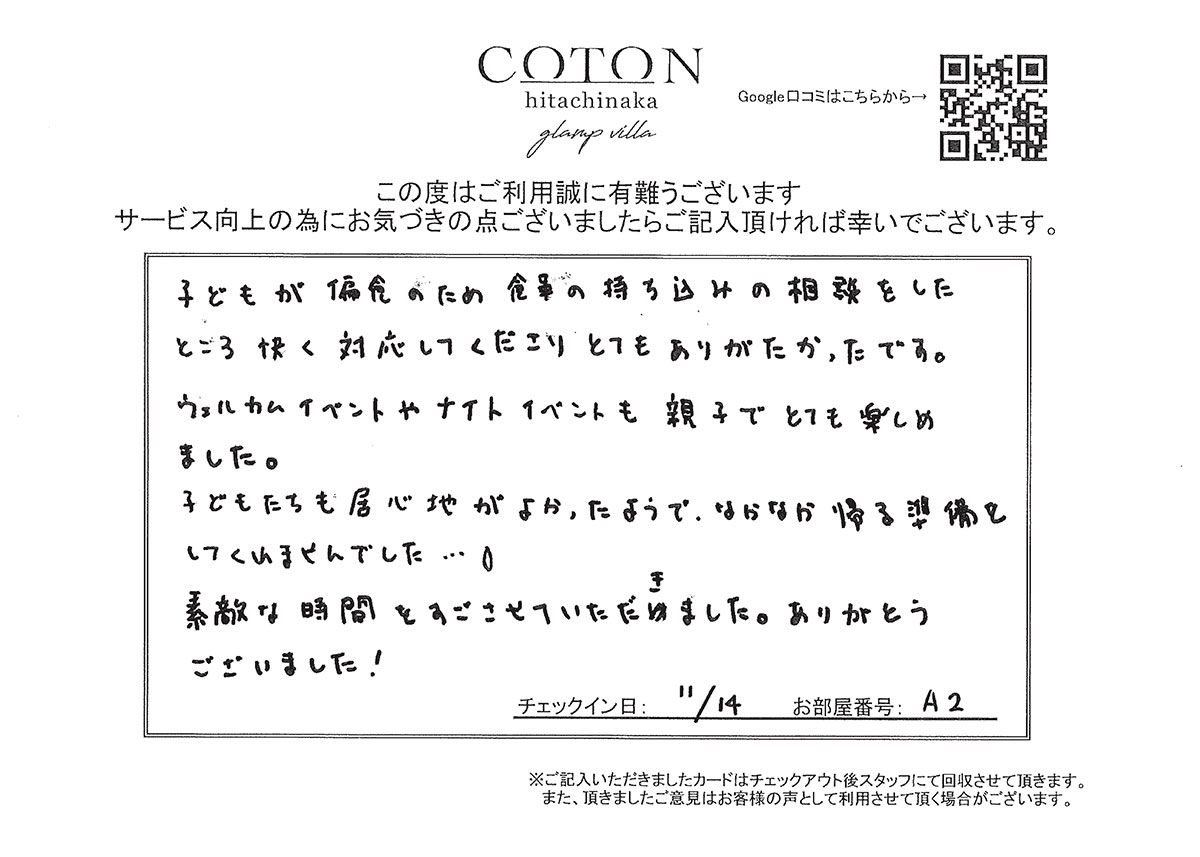 COTON
hitachinaka
glamp villa
Google口コミはこちらから→
この度はご利用誠に有難うございます
サービス向上の為にお気づきの点ございましたらご記入頂ければ幸いでございます。
子どもが偏食のため食事の持ち込みの相談をした
ところ快く対応してくださりとてもありがたかったです。
ウェルカムイベントやナイトイベントも親子でとても楽しめ
ました。
子どもたちも居心地がよかったようで、なかなか帰る準備を
してくれませんでした…
素敵な時間をすごさせていただきました。ありがとう
ございました!
チェックイン日: 11/14 お部屋番号: A2
※ご記入いただきましたカードはチェックアウト後スタッフにて回収させて頂きます。
また、頂きましたご意見はお客様の声として利用させて頂く場合がございます。